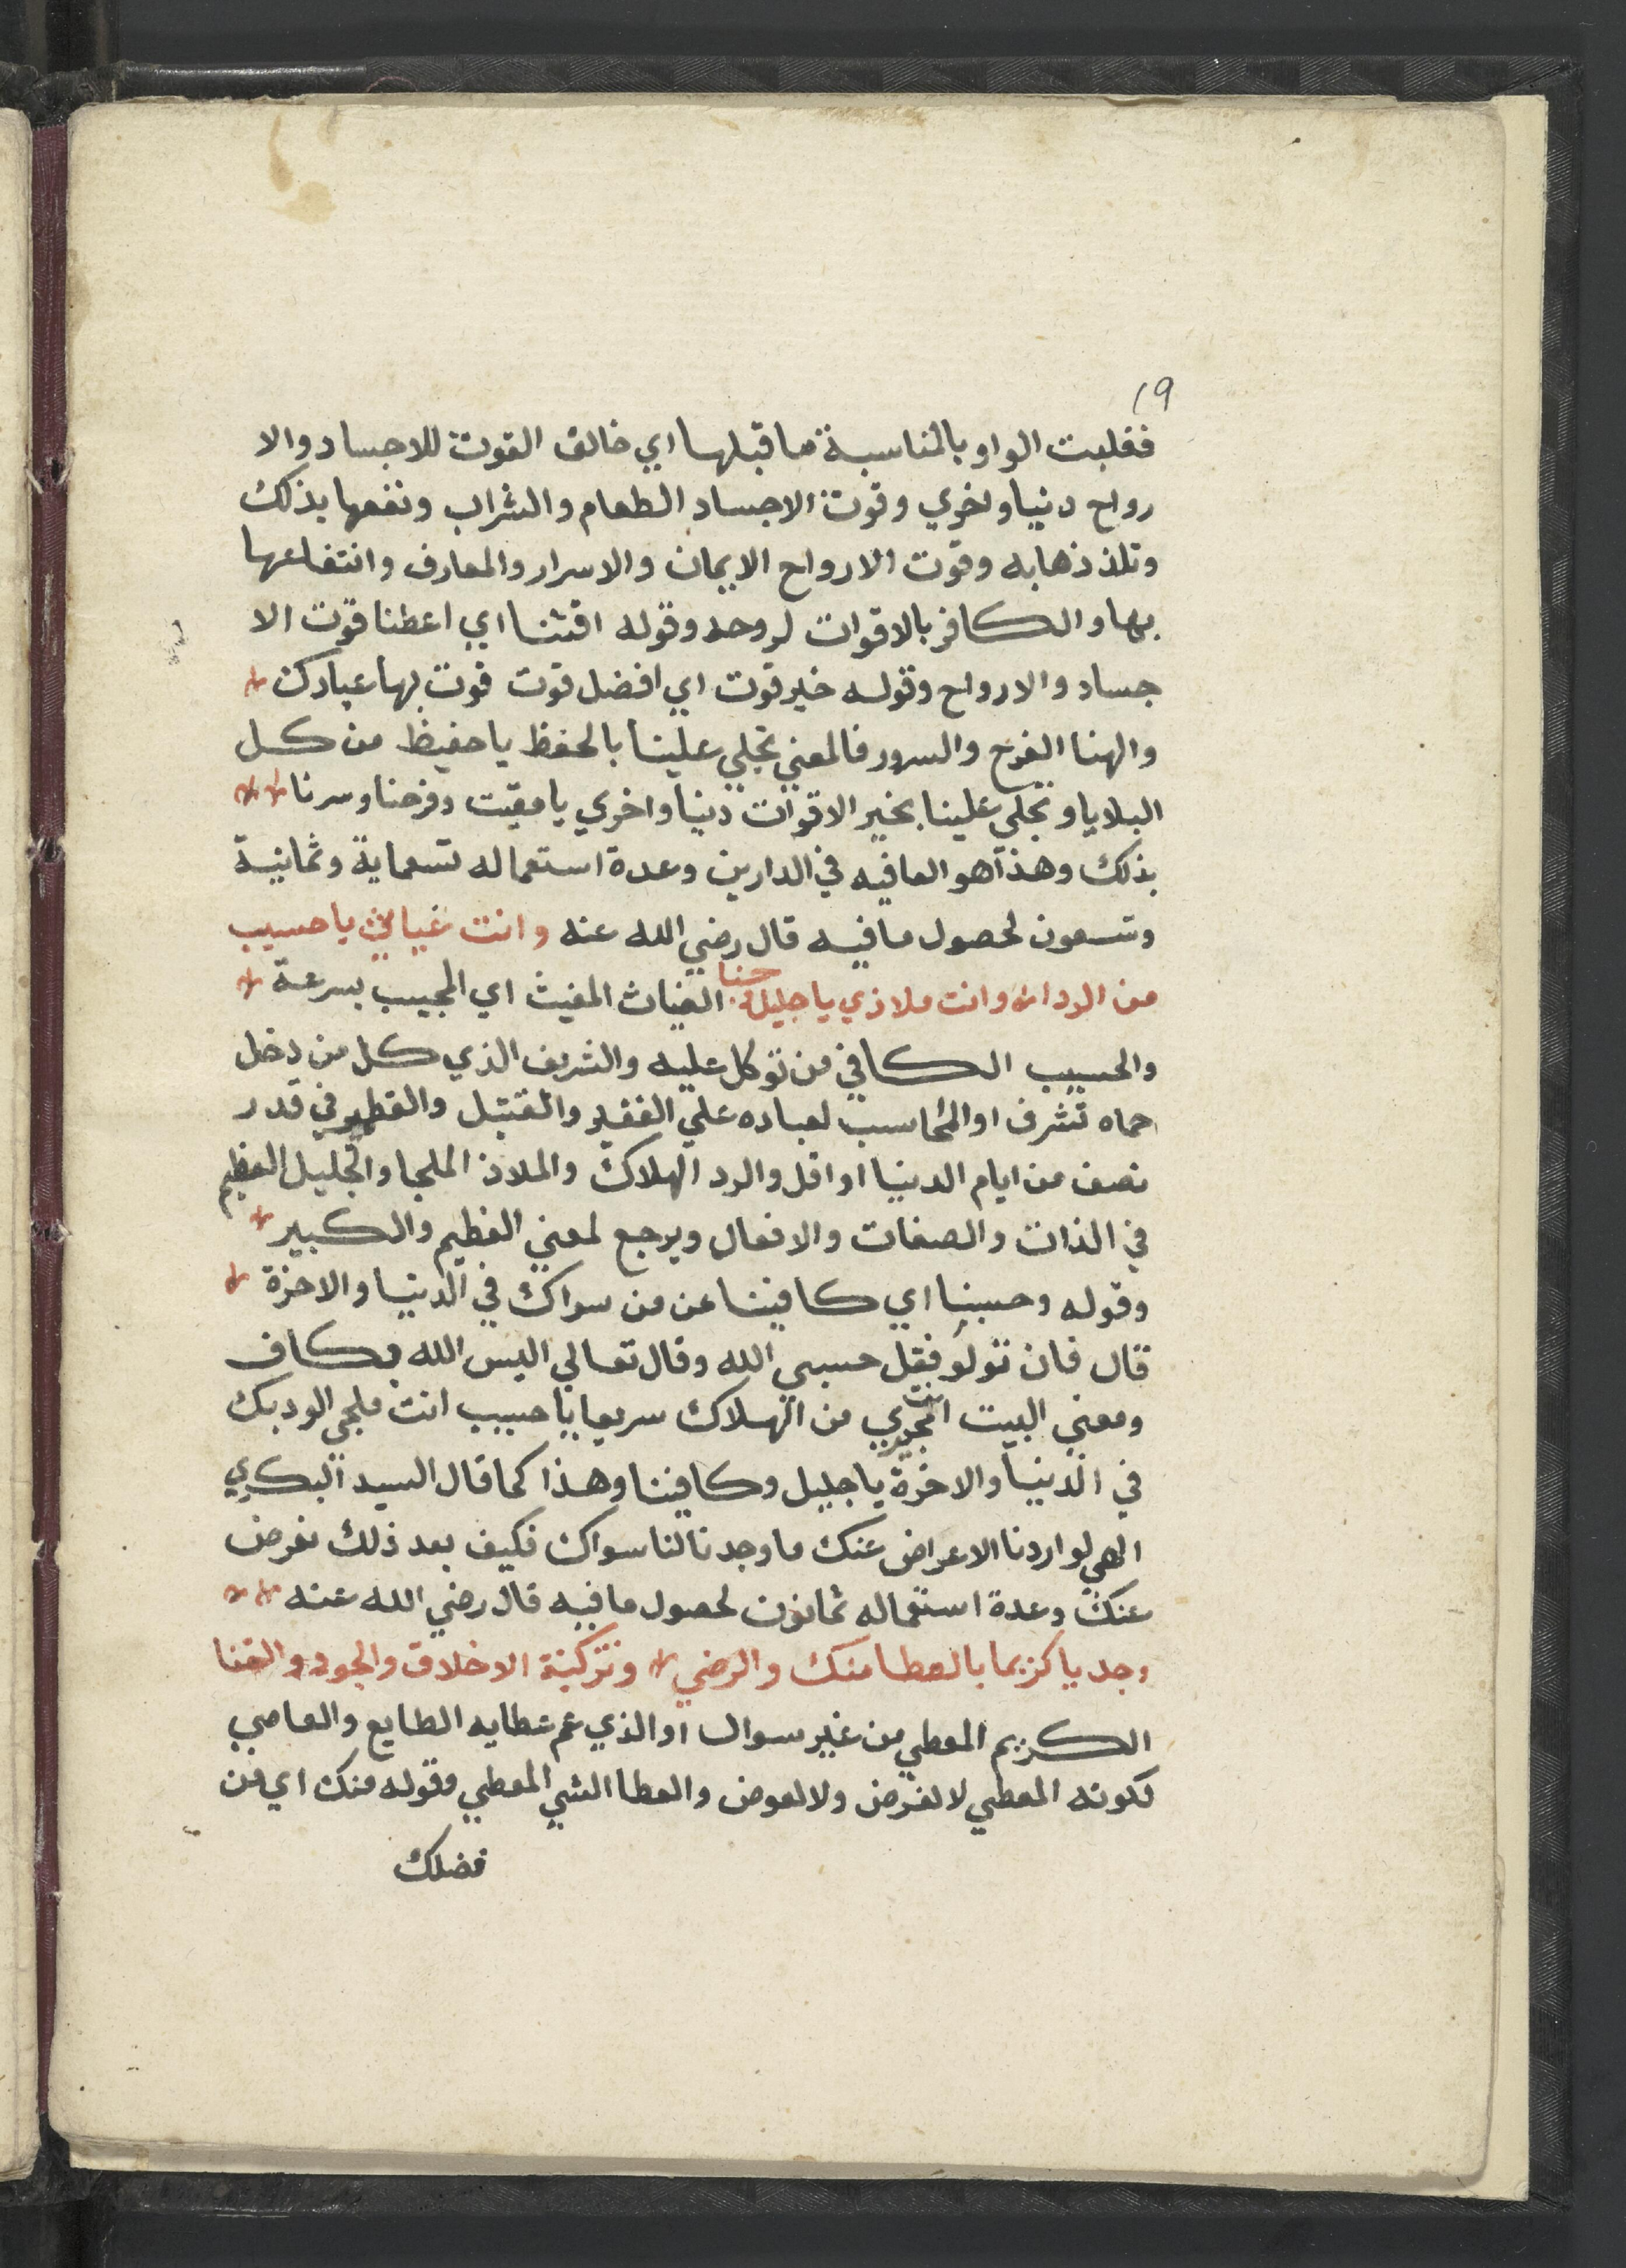 19
فقلبت الواو بالمناسبة ما قبلها اي خالق القوت للاجساد والا
رواح دنيا واخري وقوت الاجساد الطعام والشراب ونفعها بذلك
وتلذذها به وقوت الارواح الايمان والاسرار والمعارف وانتفاعها
بها والكافر بالاقوات لروحه وقوله اقتنا اي اعطنا قوت الا
جساد والارواح وقوله خير قوت اي افضل قوت قوت بها عبادك
والهنا الفرح والسرور فالمعني تجلي علينا بالحفظ يا حفيظ من كل
البلايا وتجلي علينا بخير الاقوات دنيا واخري يا مقيت وفرحنا وسرنا
بذلك وهذا هو العافيه في الدارين وعدة استعماله تسعماية وثمانية
وتسعون لحصول ما فيه قال رضي الله عنه وانت غياثي يا حسيب
من الردا وانت ملاذي يا جليل وحسبنا الغياث المغيث اي المجيب بسرعة
والحسيب الكافي من توكل عليه والشريف الذي كل من دخل
حماه تشرف او المحاسب لعباده علي الفقير والفتيل والقطمير في قدر
نصف من ايام الدنيا او اقل والرد الهلاك والملاذ الملجا والجليل العظيم
في الذات والصفات والافعال ويرجع لمعني العظيم والكبير
وقوله وحسبنا اي كافينا عن من سواك في الدنيا والاخرة
قال فان تولو فقل حسبي الله وقال تعالي اليس الله بكاف
ومعني البيت انت مجيري من الهلاك سريعا يا حسيب انت ملجي الود بك
في الدنيا والاخرة يا جليل وكافينا وهذا كما قال السيد البكري
الهي لو اردنا الاعراض عنك ما وجدنا لنا سواك فكيف بعد ذلك نعرض
عنك وعدة استعماله ثمانون لحصول ما فيه قال رضي الله عنه
وجد يا كريما بالعطا منك والرضي وتزكية الاخلاق والجود والغنا
الكريم المعطي من غير سوال او الذي عم عطايه الطايع والعاصي
لكونه المعطي لا لغرض ولا لعوض والعطا الشي المعطي وقوله منك اي من
فضلك